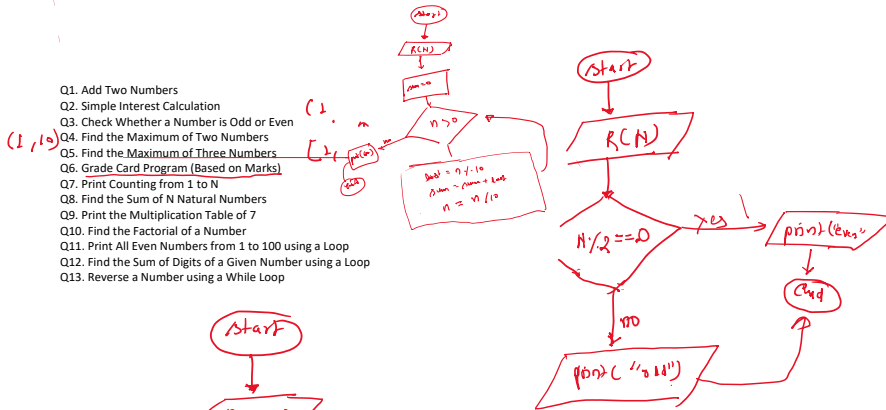 Q1. Add Two Numbers
Q2. Simple Interest Calculation
Q3. Check Whether a Number is Odd or Even
Q4. Find the Maximum of Two Numbers
Q5. Find the Maximum of Three Numbers
Q6. Grade Card Program (Based on Marks)
Q7. Print Counting from 1 to N
Q8. Find the Sum of N Natural Numbers
Q9. Print the Multiplication Table of 7
Q10. Find the Factorial of a Number
Q11. Print All Even Numbers from 1 to 100 using a Loop
Q12. Find the Sum of Digits of a Given Number using a Loop
Q13. Reverse a Number using a While Loop
(1,10)
(1,
[1,
n
start
R(N)
sum=0
n>0
no
last = n%10
sum = sum + last
n = n/10
start
R(N)
N%2==0
yes
print("even"
End
no
print("odd")
start